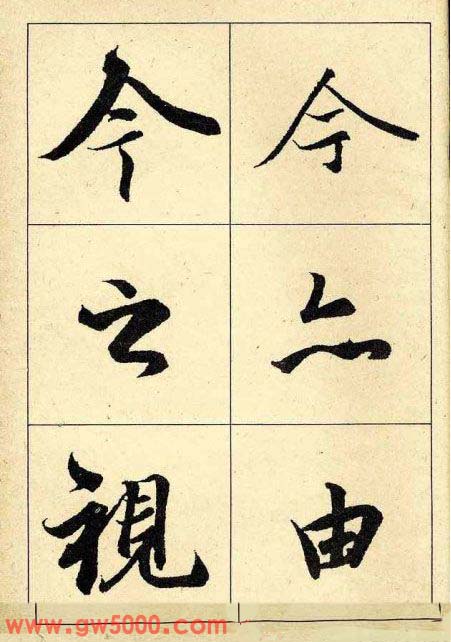 今亦由
今之視
www.gw5000.com